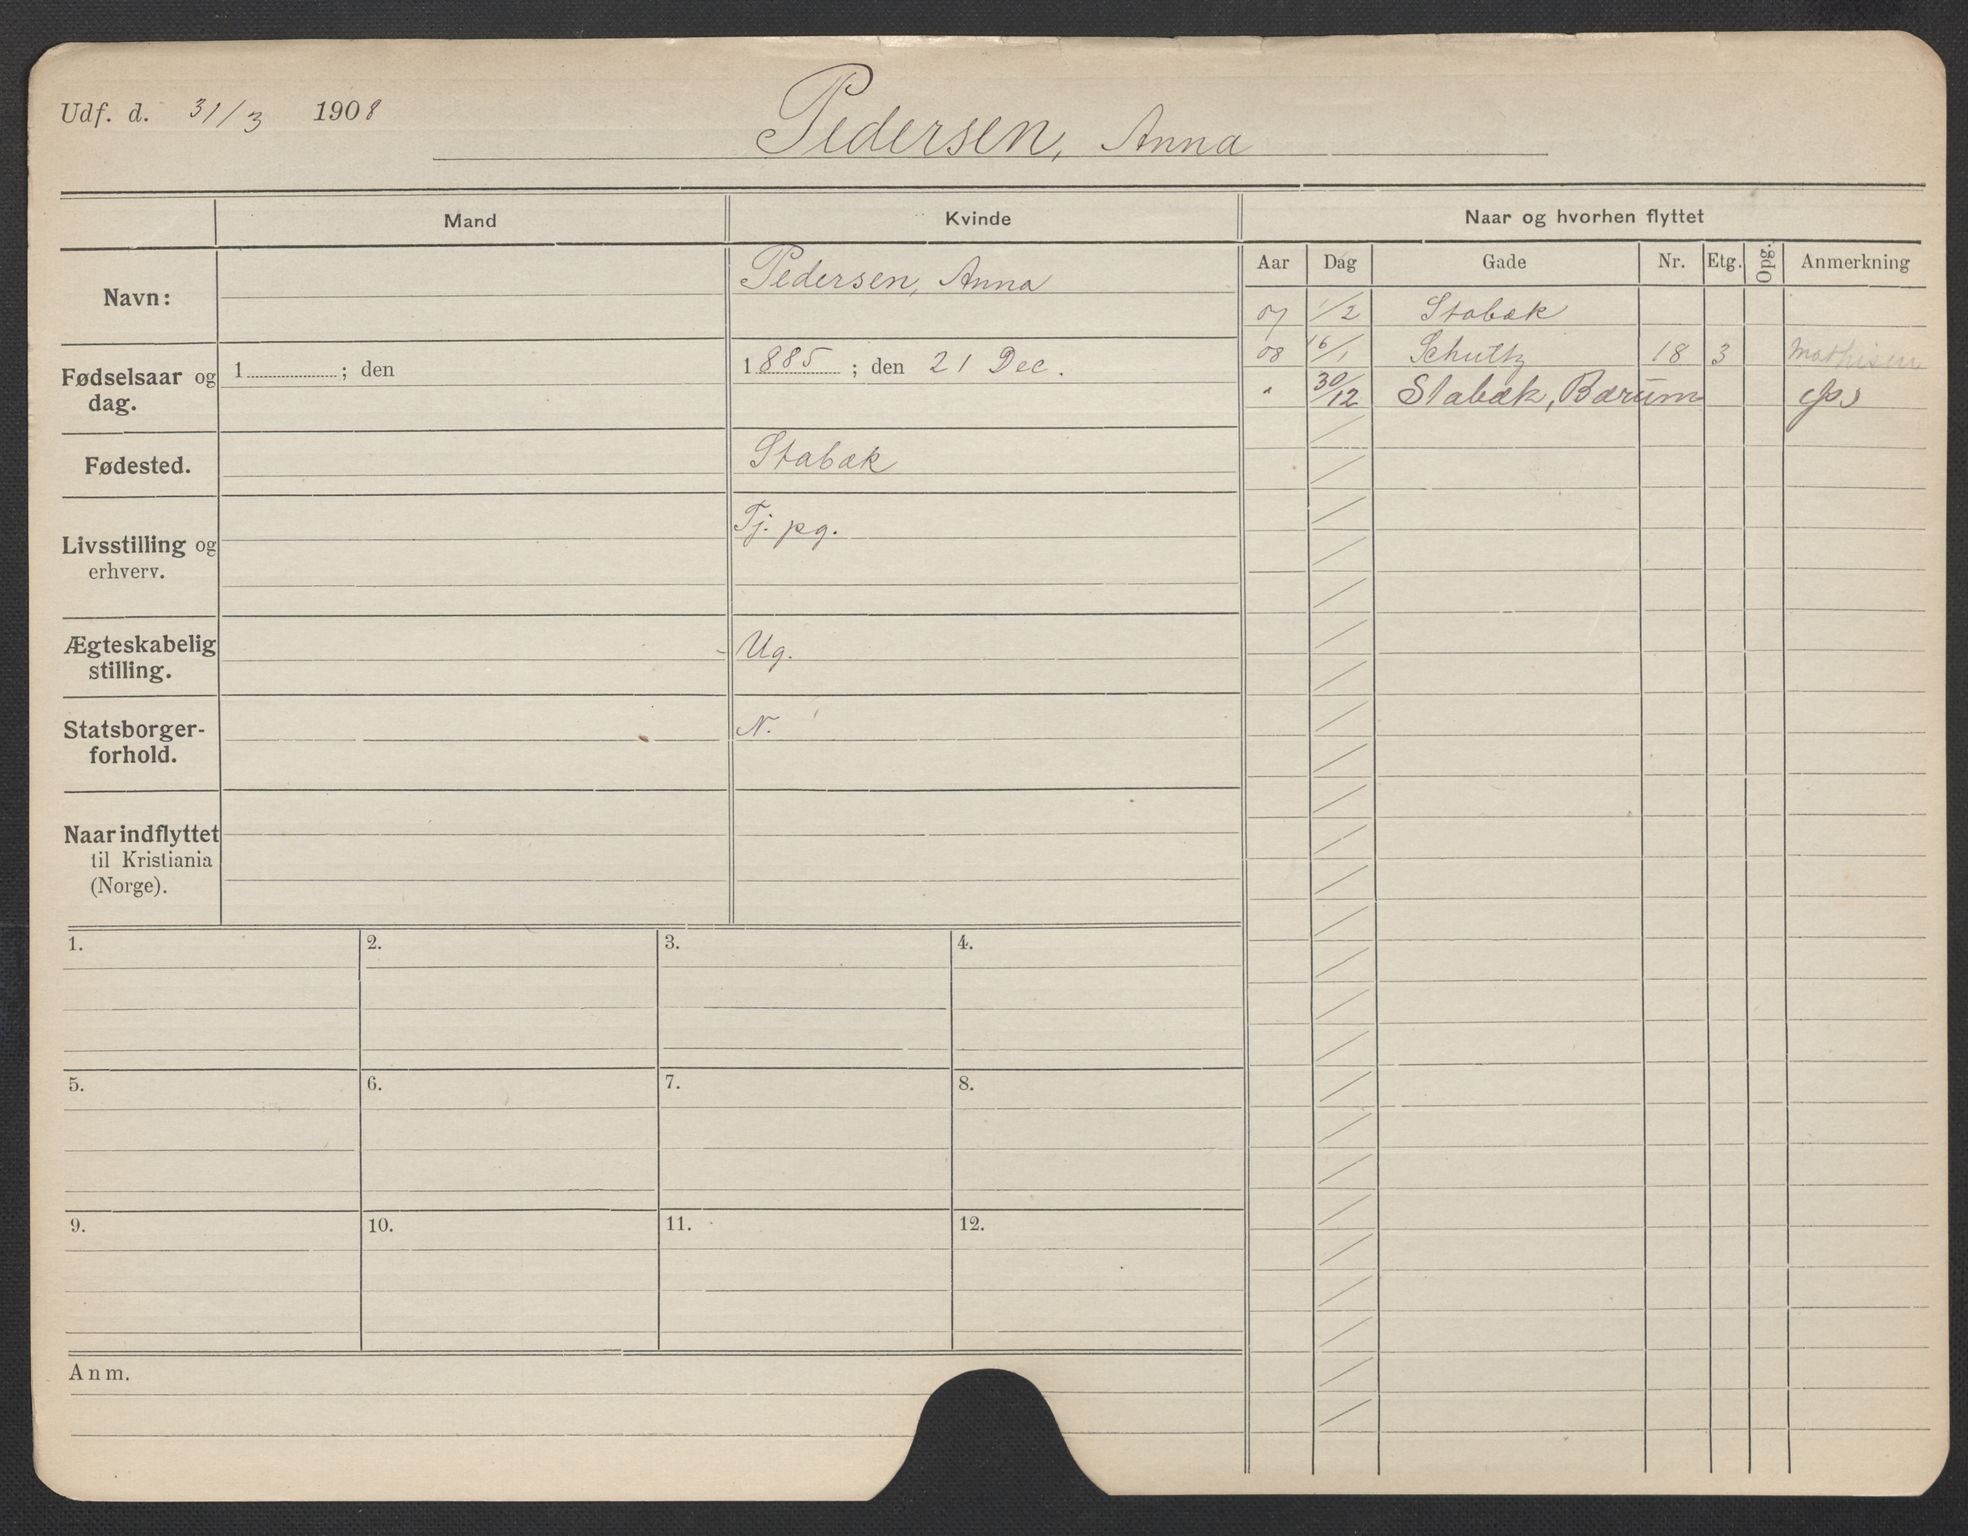 Udf. d. 31/3 1908
Pedersen, Anna
Mand Kvinde Naar og hvorhen flyttet
Aar Dag Gade Nr. Etg. Opg. Anmerkning
Navn: Pedersen, Anna
07 1/2 Stabæk
08 16/1 Schultz 18 3 Mathisen
" 30/12 Stabæk, Bærum
Fødselsaar og 1 ; den 1885 ; den 21 Dec.
dag.
Fødested. Stabæk
Livsstilling og Tj. pg.
erhverv.
Ægteskabelig Ug.
stilling.
Statsborger- N.
forhold.
Naar indflyttet
til Kristiania
(Norge).
1. 2. 3. 4.
5. 6. 7. 8.
9. 10. 11. 12.
Anm.